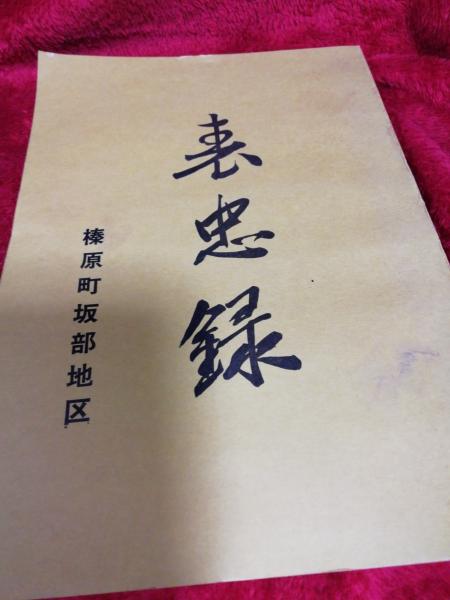 表忠録
榛原町坂部地区